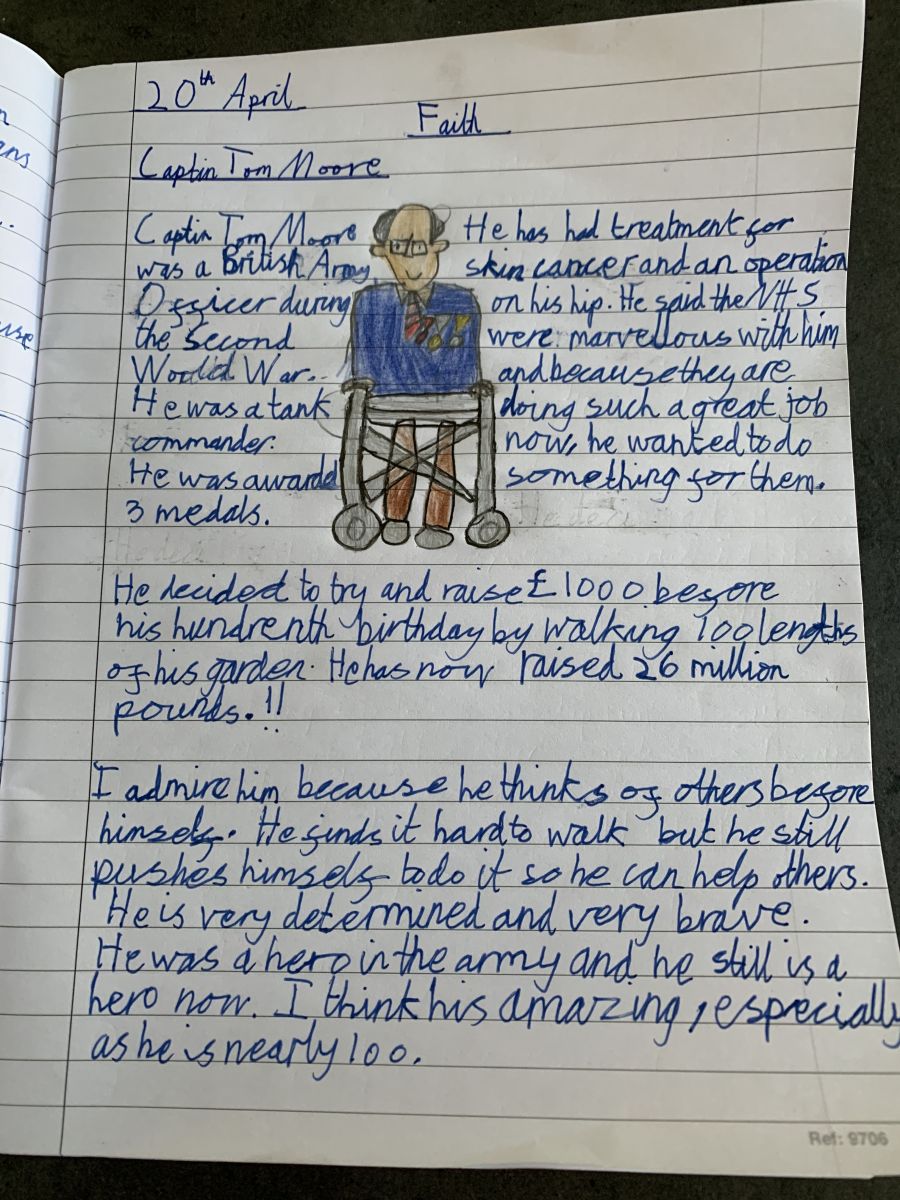 20th April
Faith
Captin Tom Moore
Captin Tom Moore
was a British Army
Officer during
the Second
World War.
He was a tank
commander.
He was awarded
3 medals.
He has had treatment for
skin cancer and an operation
on his hip. He said the NHS
were marvellous with him
and because they are
doing such a great job
now, he wanted to do
something for them.
He decided to try and raise £1000 before
his hundrenth birthday by walking 100 lengths
of his garden. He has now raised 26 million
pounds.!!
I admire him because he thinks of others before
himself. He finds it hard to walk but he still
pushes himself to do it so he can help others.
He is very determined and very brave.
He was a hero in the army and he still is a
hero now. I think his amazing, especially
as he is nearly 100.
Ref: 9706